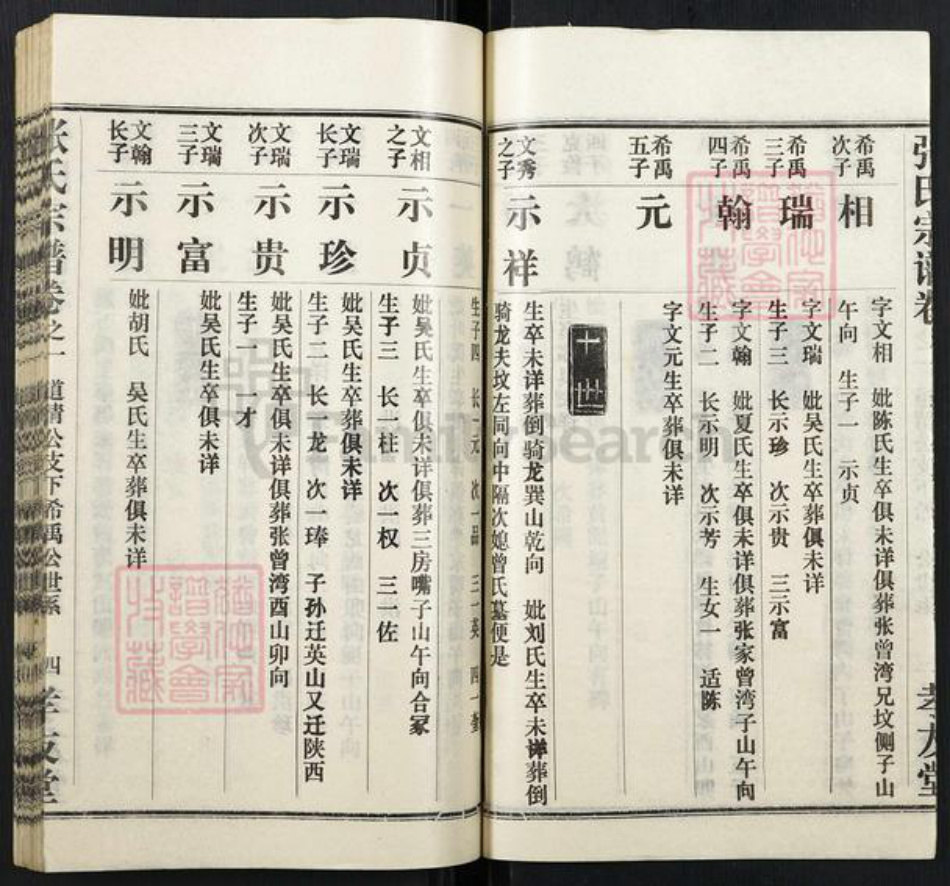 张氏宗谱卷
孝友堂
希禹次子
相
字文相 妣陈氏生卒俱未详俱葬张曾湾兄坟侧子山
午向 生子一 示贞
希禹三子
瑞
字文瑞 妣吴氏生卒葬俱未详
生子三 长示珍 次示贵 三示富
希禹四子
翰
字文翰 妣夏氏生卒俱未详俱葬张家曾湾子山午向
生子二 长示明 次示芳 生女一 适陈
希禹五子
元
字文元生卒葬俱未详
十世
文秀之子
示祥
生卒未详葬倒骑龙巽山乾向 妣刘氏生卒未详葬倒
骑龙夫坟左同向中隔次媳曾氏墓便是
生子四 长一元 次一品 三一英 四一
文相之子
示贞
妣吴氏生卒俱未详俱葬三房嘴子山午向合冢
生子三 长一柱 次一权 三一佐
文瑞长子
示珍
妣吴氏生卒葬俱未详
生子二 长一龙 次一琫 子孙迁英山又迁陕西
文瑞次子
示贵
妣吴氏生卒俱未详俱葬张曾湾酉山卯向
生子一 一才
文瑞三子
示富
妣吴氏生卒俱未详
文翰长子
示明
妣胡氏 吴氏生卒葬俱未详
张氏宗谱卷之一 道清公支下希禹公世系 四 孝友堂
FamilySearch